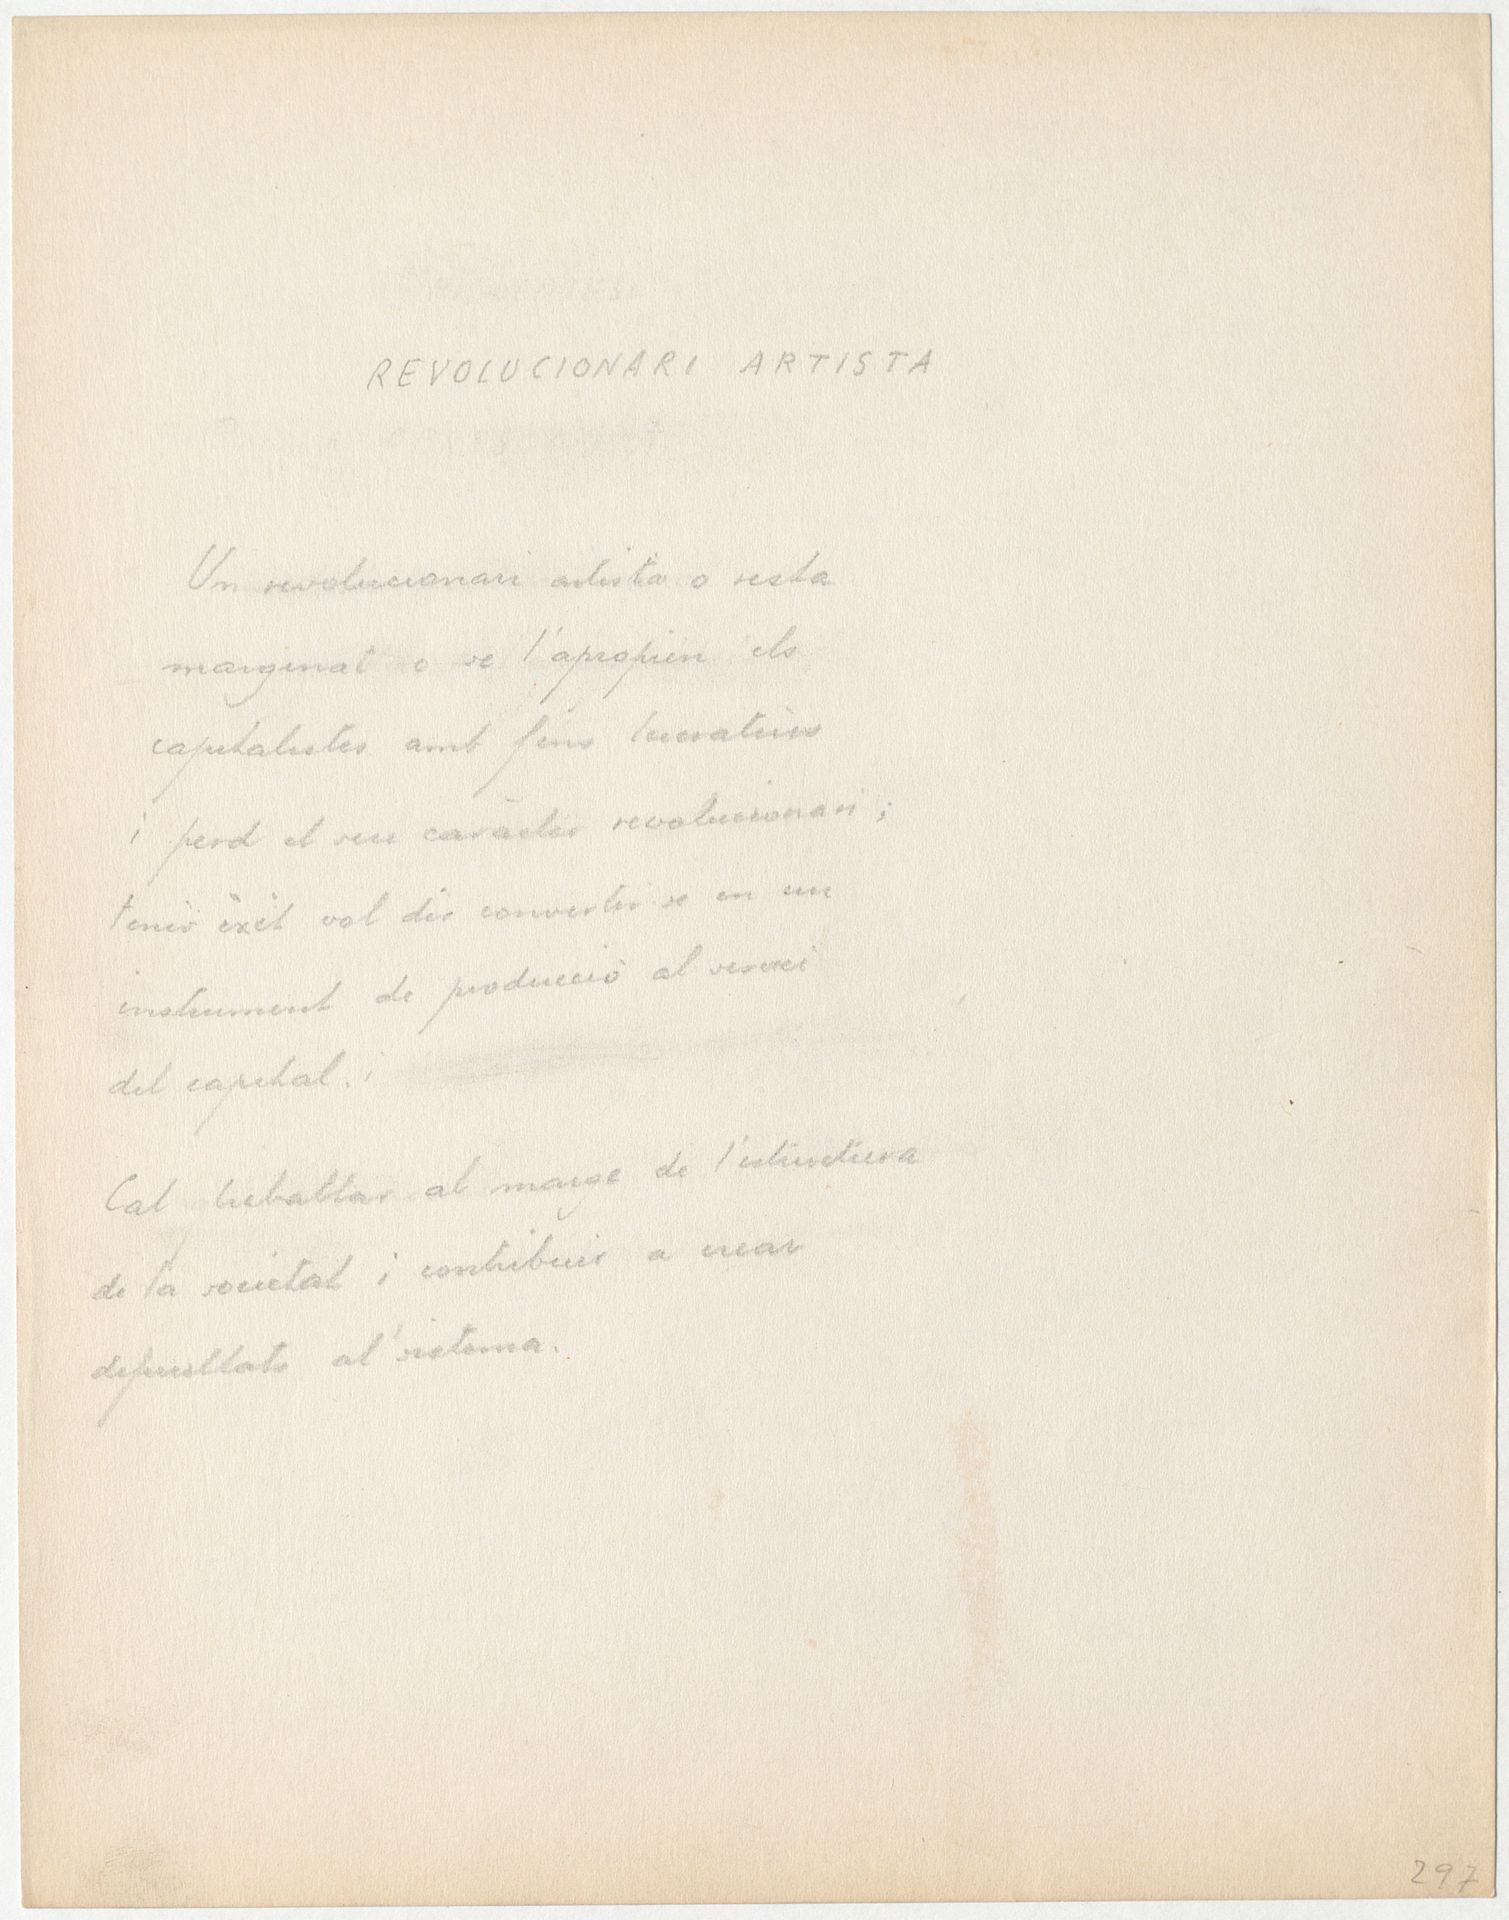 REVOLUCIONARI ARTISTA
Un revolucionari artista o resta
marginat o se l'apropien els
capitalistes amb fins lucratius
i perd el seu caràcter revolucionari;
tenir èxit vol dir convertir-se en un
instrument de producció al servei
del capital. i
Cal treballar al marge de l'estructura
de la societat i contribuir a crear
al sistema.
297